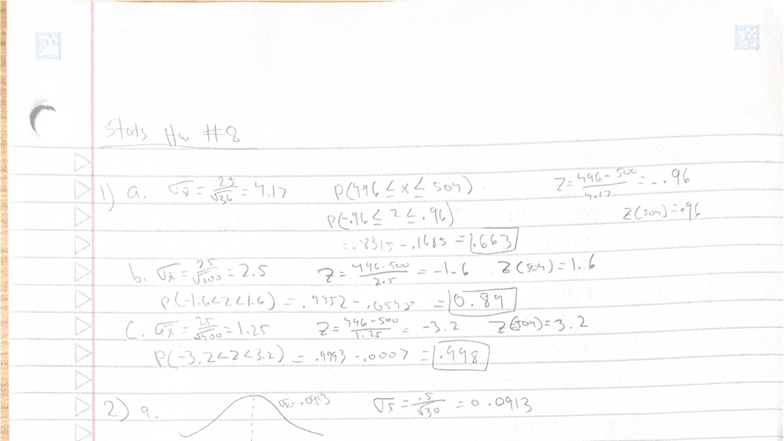 Stats Hw #8
1) a. σx̄ = 25/√36 = 4.17 P(496 ≤ x ≤ 504) z = 496-500/4.17 = -.96
P(-.96 ≤ z ≤ .96) z(504) = .96
= .8315 - .1685 = .663
b. σx̄ = 25/√100 = 2.5 z = 496-500/2.5 = -1.6 z(504) = 1.6
P(-1.6<z<1.6) = .9452 - .0548 = 0.89
C. σx̄ = 25/√400 = 1.25 z = 496-500/1.25 = -3.2 z(504) = 3.2
P(-3.2<z<3.2) = .9993 - .0007 = .998
2) a. σx̄ = .0913 σx̄ = .5/√30 = 0.0913